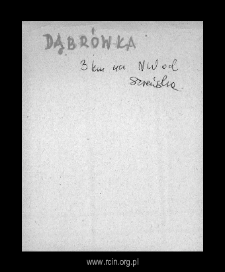 DĄBRÓWKA
3 km na NW od
Szreńska
www.rcin.org.pl